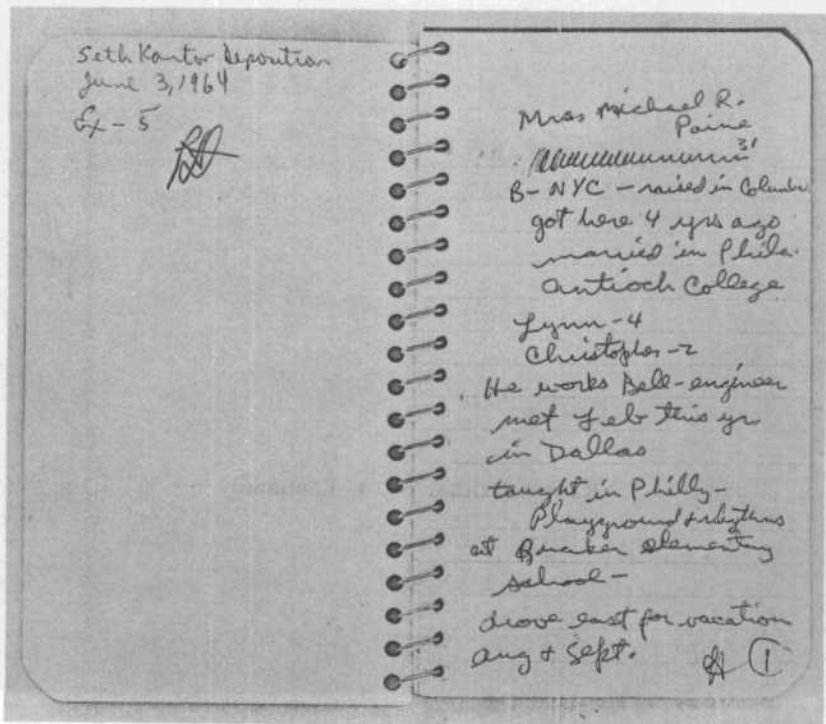 Seth Kantor Deposition
June 3, 1964
Ex - 5
Mrs Michael R.
Paine
31
B - NYC - raised in Columbus
got here 4 yrs ago
married in Phila.
Antioch College
Lynn - 4
Christopher - 2
He works Bell - engineer
met Feb this yr
in Dallas
taught in Philly -
Playground + rhythms
at Quaker elementary
school -
drove east for vacation
Aug + Sept.
1